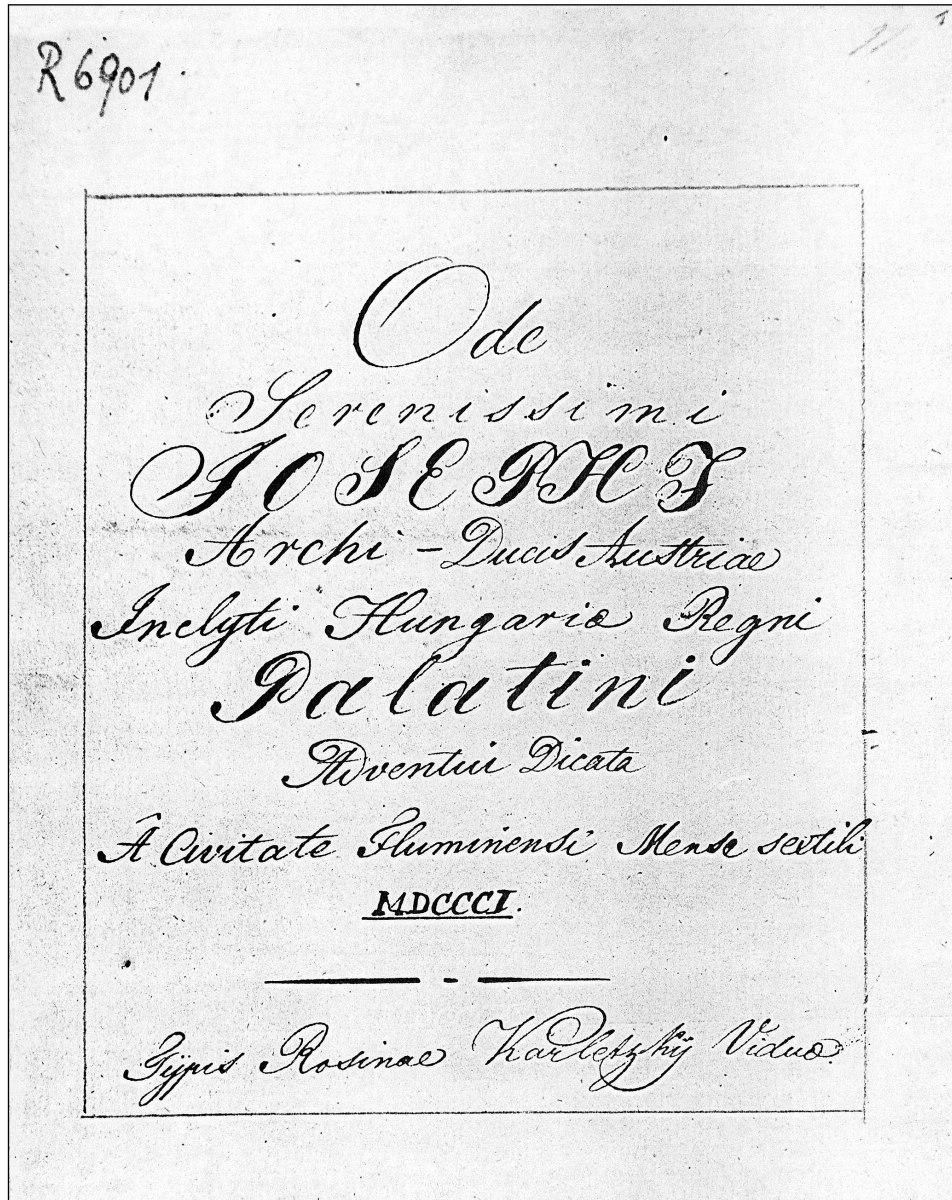 R 6901.
Ode
Serenissimi
JOSEPHJ
Archi-Ducis Austriae
Inclyti Hungariæ Regni
Palatini
Adventui Dicata
Â Civitate Fluminensi Mense sextili
MDCCCI.
Typis Rosinae Karletzkÿ Viduæ